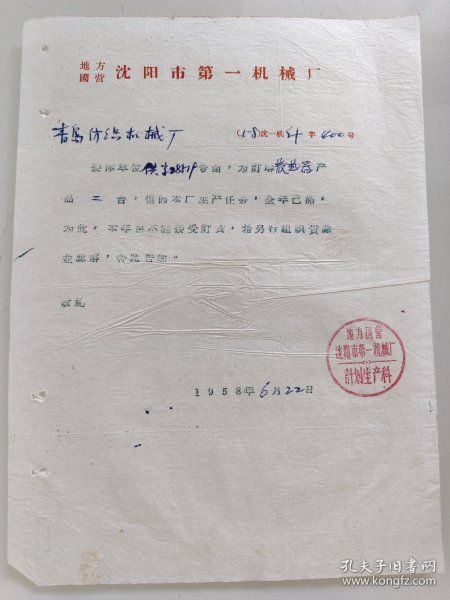 地方國营 沈阳市第一机械厂
青岛纺织机械厂
(58)沈一机计字400号
接你单位供字2879号函,为訂購散热器产
品二台,但因本厂生产任务,全年已滿,
为此,本年因不能接受訂貨,希另行組織貨源
查諒解,特此告知。
敬礼
地方国营
沈阳市第一机械厂
計划生产科
1958年6月22日
孔夫子旧书网
www.kongfz.com